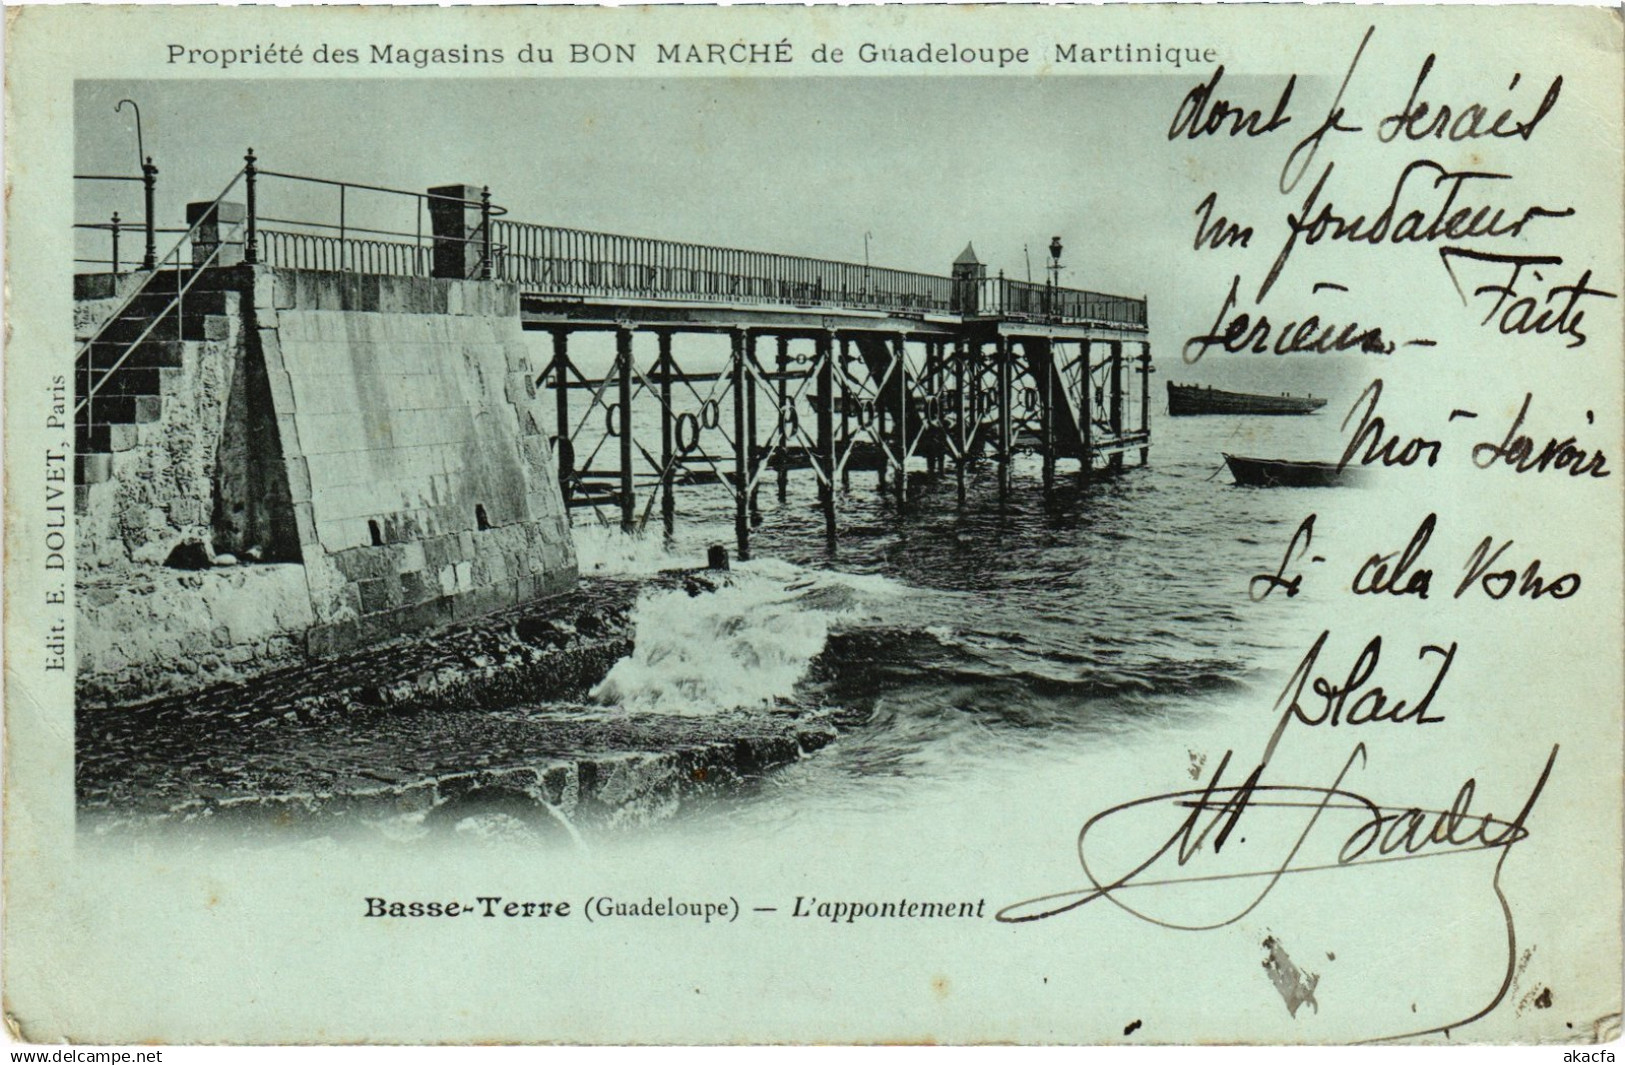 Propriété des Magasins du BON MARCHÉ de Guadeloupe Martinique
dont je serais
un fondateur
serieux - Faites
moi savoir
si cela vous
plait
Edit. E. DOLIVET, Paris
Basse-Terre (Guadeloupe) — L'appontement
delcampe.net
akacfa